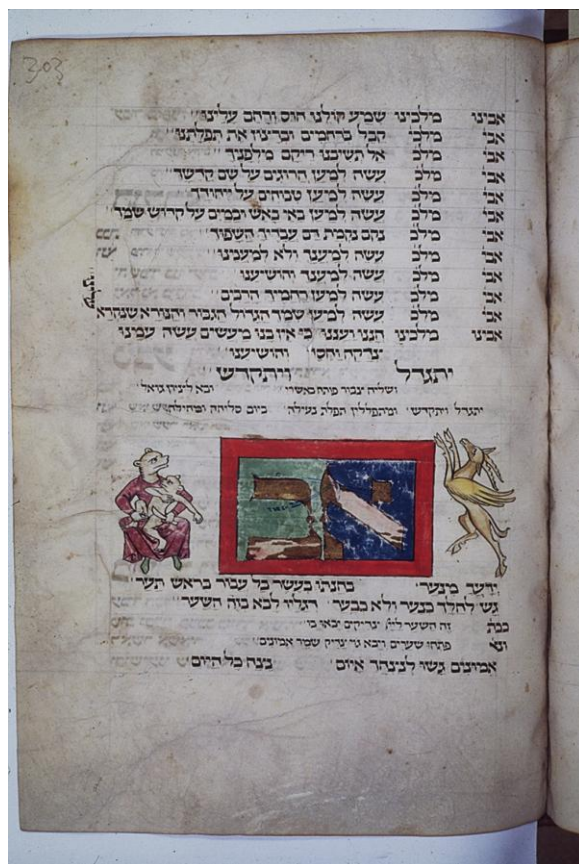 303
אבינו מלכינו שמע קולנו חוס ורחם עלינו
אבי׳ מלכ׳ קבל ברחמים וברצון את תפלתנו
אבי׳ מלכ׳ אל תשיבנו ריקם מלפניך
אבי׳ מלכ׳ עשה למען הרוגים על שם קדשך
אבי׳ מלכ׳ עשה למען טבוחים על ייחודך
אבי׳ מלכ׳ עשה למען באי באש ובמים על קידוש שמך
אבי׳ מלכ׳ נקום נקמת דם עבדיך השפוך
אבי׳ מלכ׳ עשה למענך ולא למענינו
אבי׳ מלכ׳ עשה למענך והושיענו
אבי׳ מלכ׳ עשה למען רחמיך הרבים
אבי׳ מלכ׳ עשה למען שמך הגדול הגבור והנורא שנקרא
אבינו מלכינו חננו ועננו כי אין בנו מעשים עשה עמנו
צדקה וחסד והושיענו
יתגדל ויתקדש
ושליח ציבור פותח באשרי ובא לציון גואל
יתגדל ויתקדש ומתפללין תפלת נעילה ביום סליחה ומחילה
אב
ידעך מנוער
גש לחלך כנער ולא כבער רגליו לבא בזה השער
זה השער ליי׳ צדיקים יבאו בו
פתחו שערים ויבא גוי צדיק שומר אמונים
אמונים גשו לנצחך איום נצח כל היום